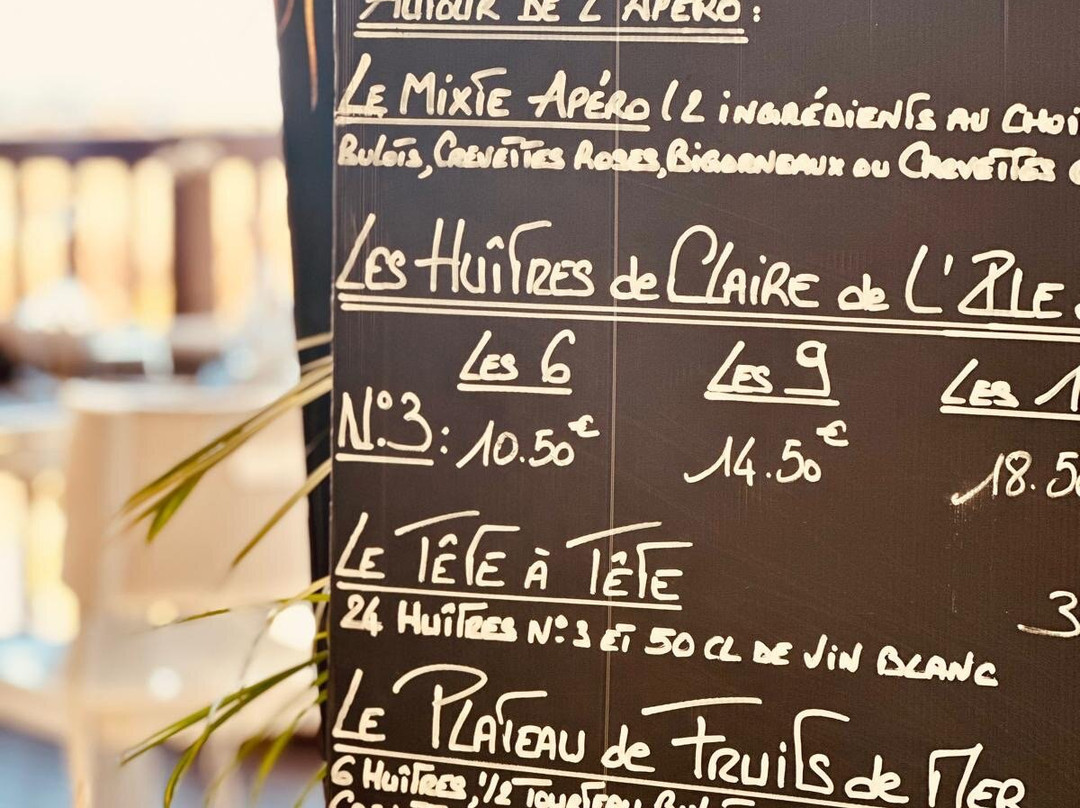 AUTOUR DE L'APÉRO :
LE MIXTE APÉRO (2 INGRÉDIENTS AU CHOI
BULOTS, CREVETTES ROSES, BIGORNEAUX OU CREVETTES
LES HUÎTRES de CLAIRE de L'ILE
LES 6 LES 9 LES 1
N°3 : 10.50€ 14.50€ 18.50
LE TÊTE À TÊTE
24 HUÎTRES N°3 ET 50 CL DE VIN BLANC 3
LE PLATEAU de FRUITS de MER
6 HUÎTRES, 1/2 TOURTEAU, BULOTS